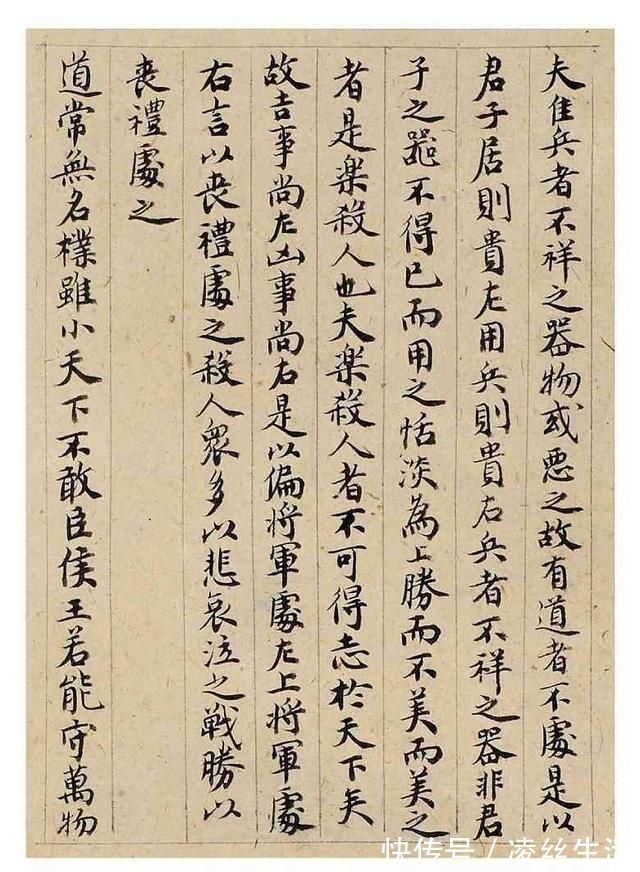 夫佳兵者不祥之器物或惡之故有道者不處是以
君子居則貴左用兵則貴右兵者不祥之器非君
子之器不得已而用之恬淡為上勝而不美而美之
者是樂殺人也夫樂殺人者不可得志於天下矣
故吉事尚左凶事尚右是以偏將軍處左上將軍處
右言以喪禮處之殺人眾多以悲哀泣之戰勝以
喪禮處之
道常無名樸雖小天下不敢臣侯王若能守萬物
快传号/凌丝生活